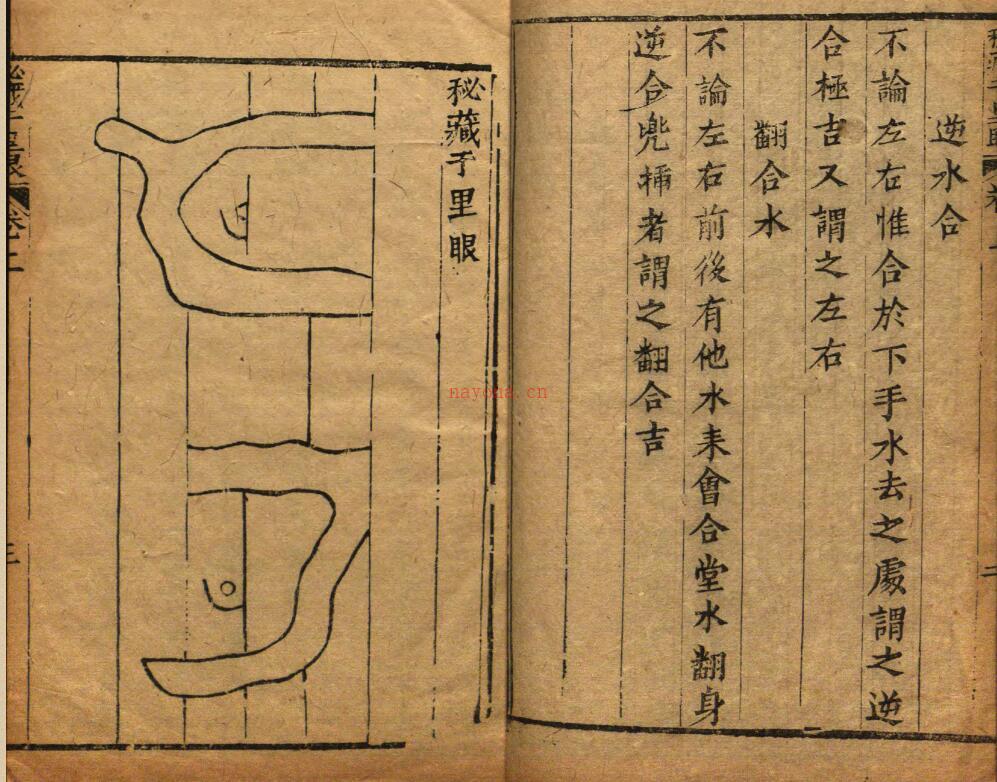 逆水合
不論左右惟合於下手水去之處謂之逆
合極吉又謂之左右
翻合水
不論左右前後有他水来會合堂水翻身
逆合兠揷者謂之翻合吉
二
秘藏千里眼
卷二
三
nayona.cn